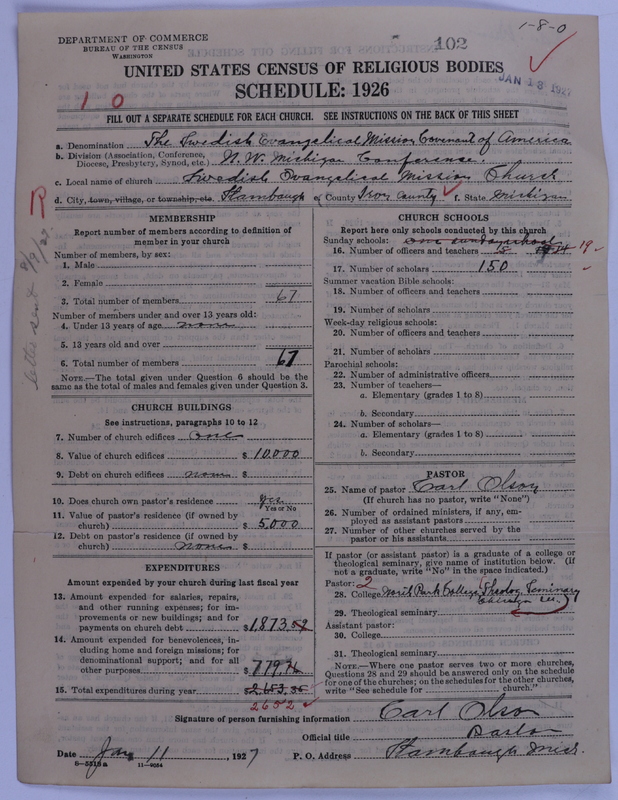 1-8-0
DEPARTMENT OF COMMERCE
BUREAU OF THE CENSUS
WASHINGTON
102
UNITED STATES CENSUS OF RELIGIOUS BODIES
JAN 18 1927
SCHEDULE: 1926
1 0
FILL OUT A SEPARATE SCHEDULE FOR EACH CHURCH. SEE INSTRUCTIONS ON THE BACK OF THIS SHEET
a. Denomination The Swedish Evangelical Mission Covenant of America
b. Division (Association, Conference, Diocese, Presbytery, Synod, etc.) N.W. Michigan Conference.
c. Local name of church Swedish Evangelical Mission Church
d. City, town, village, or township, etc. Stambaugh e. County Iron County f. State Michigan
R
letter sent 8/9/27
MEMBERSHIP
Report number of members according to definition of member in your church
Number of members, by sex:
1. Male
2. Female
3. Total number of members 67
Number of members under and over 13 years old:
4. Under 13 years of age none
5. 13 years old and over
6. Total number of members 67
NOTE.—The total given under Question 6 should be the same as the total of males and females given under Question 3.
CHURCH BUILDINGS
See instructions, paragraphs 10 to 12
7. Number of church edifices one
8. Value of church edifices $ 10.000
9. Debt on church edifices none $
10. Does church own pastor's residence yes
Yes or No
11. Value of pastor's residence (if owned by church) $ 5,000
12. Debt on pastor's residence (if owned by church) none $
EXPENDITURES
Amount expended by your church during last fiscal year
13. Amount expended for salaries, repairs, and other running expenses; for improvements or new buildings; and for payments on church debt $1,873.52
14. Amount expended for benevolences, including home and foreign missions; for denominational support; and for all other purposes $ 779.74
15. Total expenditures during year $2,653,
2652
CHURCH SCHOOLS
Report here only schools conducted by this church
Sunday schools: one sunday school
16. Number of officers and teachers 19
17. Number of scholars 150
Summer vacation Bible schools:
18. Number of officers and teachers
19. Number of scholars
Week-day religious schools:
20. Number of officers and teachers
21. Number of scholars
Parochial schools:
22. Number of administrative officers
23. Number of teachers—
a. Elementary (grades 1 to 8)
b. Secondary
24. Number of scholars—
a. Elementary (grades 1 to 8)
b. Secondary
PASTOR
25. Name of pastor Carl Olson
(If church has no pastor, write "None")
26. Number of ordained ministers, if any, employed as assistant pastors
27. Number of other churches served by the pastor or his assistants
If pastor (or assistant pastor) is a graduate of a college or theological seminary, give name of institution below. (If not a graduate, write "No" in the space indicated.)
Pastor: 2
28. College North Park College Theolog. Seminary
Chicago Ill.
29. Theological seminary
Assistant pastor:
30. College
31. Theological seminary
NOTE.—Where one pastor serves two or more churches, Questions 28 and 29 should be answered only on the schedule for one of the churches; on the schedules for the other churches, write "See schedule for church."
Signature of person furnishing information Carl Olson
Official title Pastor
Date Jan 11, 1927 P. O. Address Stambaugh Mich.
8—5518a 11—9054